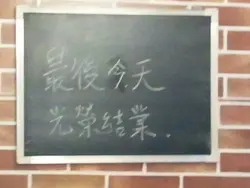 最後今天
光榮結業.